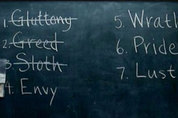 1. Gluttony
2. Greed
3 Sloth
4. Envy
5 Wrath
6. Pride
7. Lust